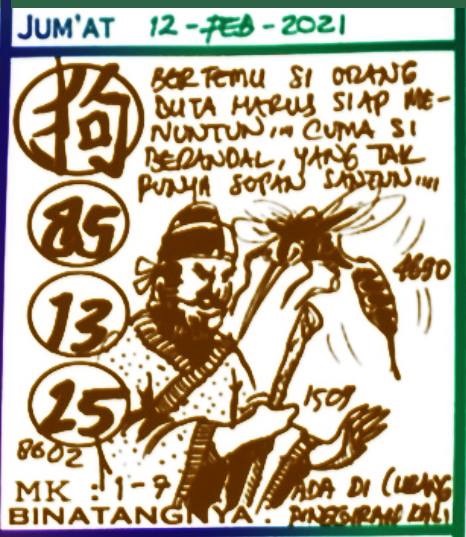 JUM'AT 12-FEB-2021
狗
BERTEMU SI ORANG
BUTA HARUS SIAP ME-
NUNTUN,,, CUMA SI
BERANDAL, YANG TAK
PUNYA SOPAN SANTUN,,,,
85
13
25
4690
1509
8602
MK : 1-7
BINATANGNYA :
ADA DI
KALI